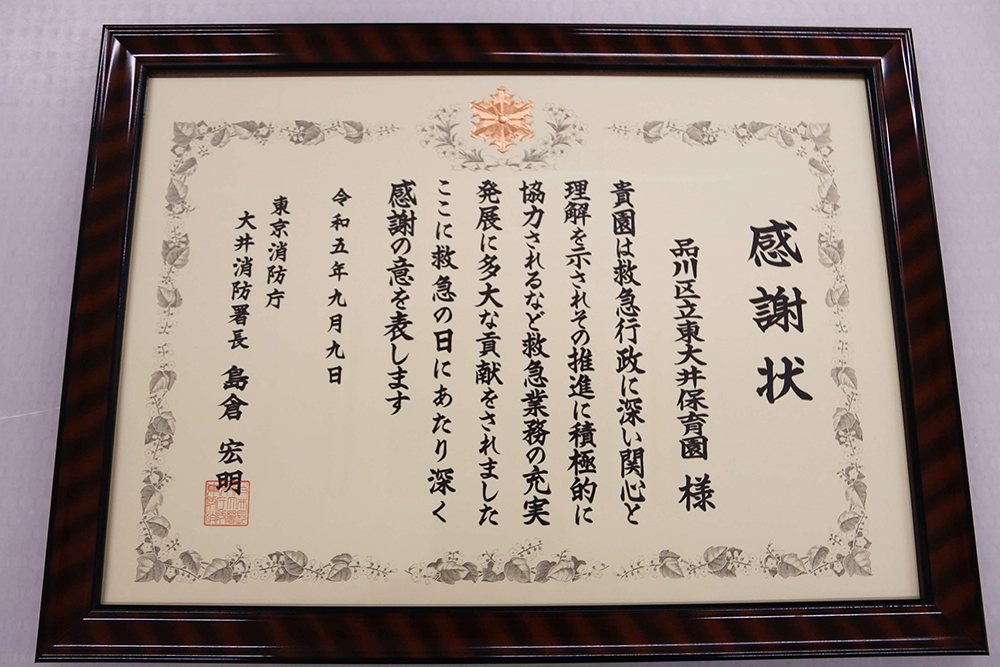 感謝状
品川区立東大井保育園 様
貴園は救急行政に深い関心と
理解を示されその推進に積極的に
協力されるなど救急業務の充実
発展に多大な貢献をされました
ここに救急の日にあたり深く
感謝の意を表します
令和五年九月九日
東京消防庁
大井消防署長 島倉 宏明